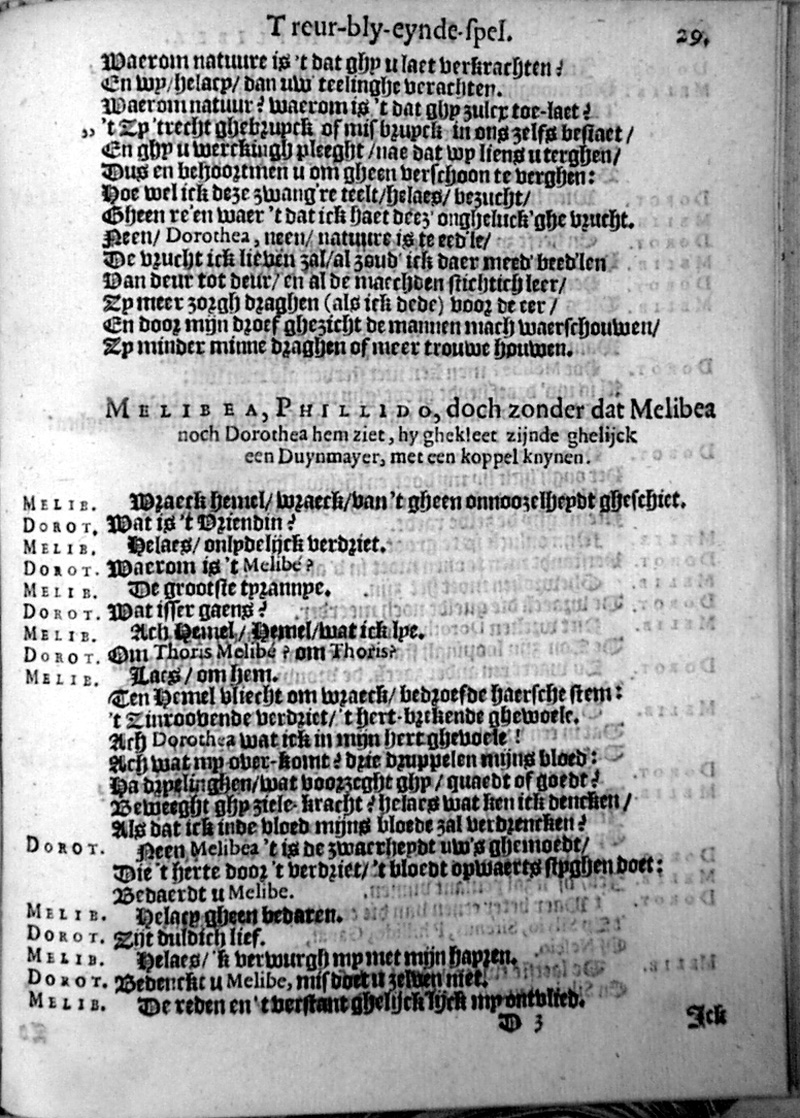 Treur-bly-eynde-spel. 29.
Waerom natuure is 't dat ghy u laet verkrachten?
En wy/ helaey/ dan uw' teelinghe verachten.
Waerom natuur? waerom is 't dat ghy zulcx toe-laet?
,, 't Zy 'trecht ghebruyck of misbruyck in ons zelfs bestaet/
En ghy u werckingh pleeght/ nae dat wy liens uterghen/
Dus en behoortmen u om gheen verschoon te verghen:
Hoe wel ick deze zwang're teelt/ helaes/ bezucht/
Gheen re'en waer 't dat ick haet deez' ongheluck'ghe vrucht.
Neen/ Dorothea, neen/ natuure is te eed'le/
De vrucht ick lieven zal/ al zoud' ick daer meed' beed'len
Van deur tot deur/ en al de maechden stichtich leer/
Zy meer zorgh draghen (als ick dede) voor de eer/
En door mijn droef ghezicht de mannen mach waerschouwen/
Zy minder minne draghen of meer trouwe houwen.
MELIBEA, PHILLIDO, doch zonder dat Melibea
noch Dorothea hem ziet, hy ghekleet zijnde ghelijck
een Duynmayer, met een koppel knynen.
MELIB. Wraeck hemel/ wraeck/ van 't gheen onnoozelheydt gheschiet.
DOROT. Wat is 't Vriendin?
MELIB. Helaes/ onlydelijck verdriet.
DOROT. Waerom is 't Melibe?
MELIB. De grootste tyrannye.
DOROT. Wat isser gaens?
MELIB. Ach Hemel/ Hemel/ wat ick lye.
DOROT. Om Thoris Melibe? om Thoris?
MELIB. Laes/ om hem.
Ten Hemel vliecht om wraeck/ bedroefde haersche stem:
't Zinroovende verdriet/ 't hert-brekende ghewoele.
Ach Dorothea wat ick in mijn hert ghevoele!
Ach wat my over-komt? drie druppelen mijns bloed:
Ha drypelinghen/ wat voorzeght ghy/ quaedt of goedt?
Beweeght ghy ziele-kracht? helaes wat ken ick dencken/
Als dat ick inde vloed mijns bloede zal verdrencken?
DOROT. Neen Melibea 't is de zwaerheydt uw's ghemoedt/
Die 't herte door 't verdriet/ 't bloedt opwaerts styghen doet:
Bedaerdt u Melibe.
MELIB. Helaey gheen bedaren.
DOROT. Zijt duldich lief.
MELIB. Helaes/ 'k verwurgh my met mijn hayren.
DOROT. Bedenckt u Melibe, misdoet u zelven niet.
MELIB. De reden en 't verstant ghelijck lijck my ontvlied.
D 3 Ick